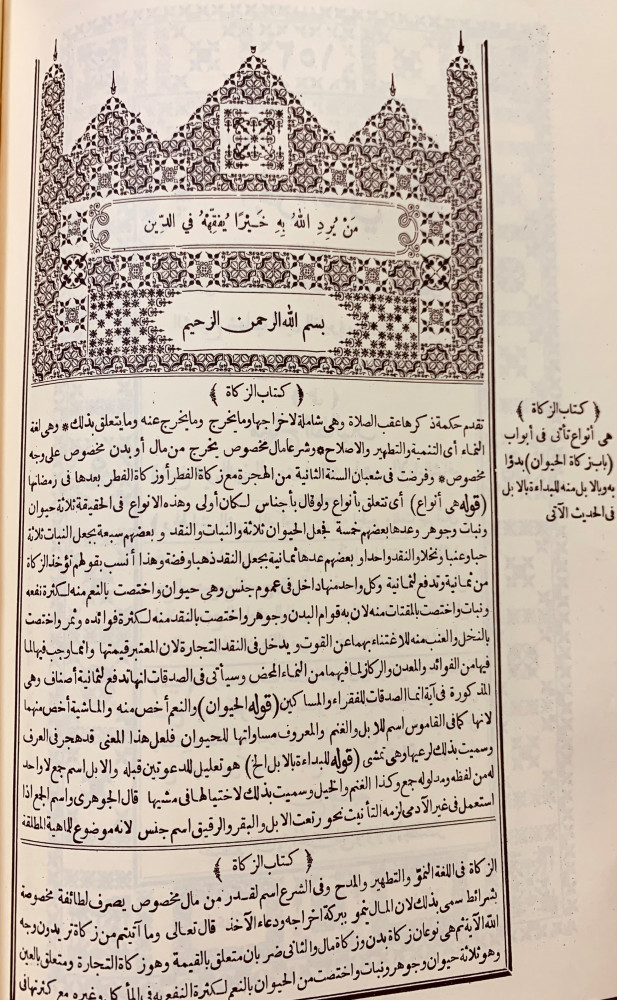 مَنْ يُرِدِ اللهُ بِهِ خَيْرًا يُفَقِّهْهُ فِي الدِّين
بسم الله الرحمن الرحيم
﴿ كتاب الزكاة ﴾
تقدم حكمة ذكرها عقب الصلاة وهى شاملة لاخراجها وما يخرج وما يخرج عنه وما يتعلق بذلك * وهى لغة
النماء أى التنمية والتطهير والاصلاح * وشرعا مال مخصوص يخرج من مال أو بدن مخصوص على وجه
مخصوص * وفرضت فى شعبان السنة الثانية من الهجرة مع زكاة الفطر أو زكاة الفطر بعدها فى رمضانها
(قوله هى أنواع) أى تتعلق بأنواع ولو قال بأجناس لكان أولى وهذه الانواع فى الحقيقة ثلاثة حيوان
ونبات وجوهر وعدها بعضهم خمسة فجعل الحيوان ثلاثة والنبات والنقد و بعضهم سبعة بجعل النبات ثلاثة
حبا وعنبا ونخلا والنقد واحدا و بعضهم عدها ثمانية بجعل النقد ذهبا وفضة وهذا أنسب بقولهم تؤخذ الزكاة
من ثمانية وتدفع لثمانية وكل واحد منها داخل فى عموم جنس وهى حيوان واختصت بالنعم منه لكثرة نفعه
ونبات واختصت بالمقتات منه لان به قوام البدن وجوهر واختصت بالنقد منه لكثرة فوائده وثمر واختصت
بالنخل والعنب منه للاغتناء بهما عن القوت و يدخل فى النقد التجارة لان المعتبر قيمتها وانما وجب فيها لما
فيها من الفوائد والمعدن والركاز لما فيهما من النماء المحض وسيأتى فى الصدقات انها تدفع لثمانية أصناف وهى
المذكورة فى آية انما الصدقات للفقراء والمساكين (قوله الحيوان) والنعم أخص منه والماشية أخص منهما
لانها كما فى القاموس اسم للابل والغنم والمعروف مساواتها للحيوان فلعل هذا المعنى قد هجر فى العرف
وسميت بذلك لرعيها وهى تمشى (قوله للبداءة بالابل الخ) هو تعليل للدعوتين قبله والابل اسم جمع لا واحد
له من لفظه ومدلوله جمع وكذا الغنم والخيل وسميت بذلك لاختيالها فى مشيها قال الجوهرى واسم الجمع اذا
استعمل فى غير الآدمى لزمه التأنيث نحو رتعت الابل والبقر والرقيق اسم جنس لانه موضوع للماهية المطلقة
﴿ كتاب الزكاة ﴾
الزكاة فى اللغة النموّ والتطهير والمدح وفى الشرع اسم لقدر من مال مخصوص يصرف لطائفة مخصوصة
بشرائط سمى بذلك لان المال ينمو ببركة اخراجه ودعاء الآخذ قال تعالى وما آتيتم من زكاة تريدون وجه
الله الآية ثم هى نوعان زكاة بدن وزكاة مال والثانى ضربان متعلق بالقيمة وهو زكاة التجارة ومتعلق بالعين
وهو ثلاثة حيوان وجوهر ونبات واختصت من الحيوان بالنعم لكثرة النفع به فى المأكل وغيره مع كثرتها فى
﴿ كتاب الزكاة ﴾
هى أنواع تأتى فى أبواب
(باب زكاة الحيوان) بدؤا
به وبالابل منه للبداءة بالابل
فى الحديث الآتى